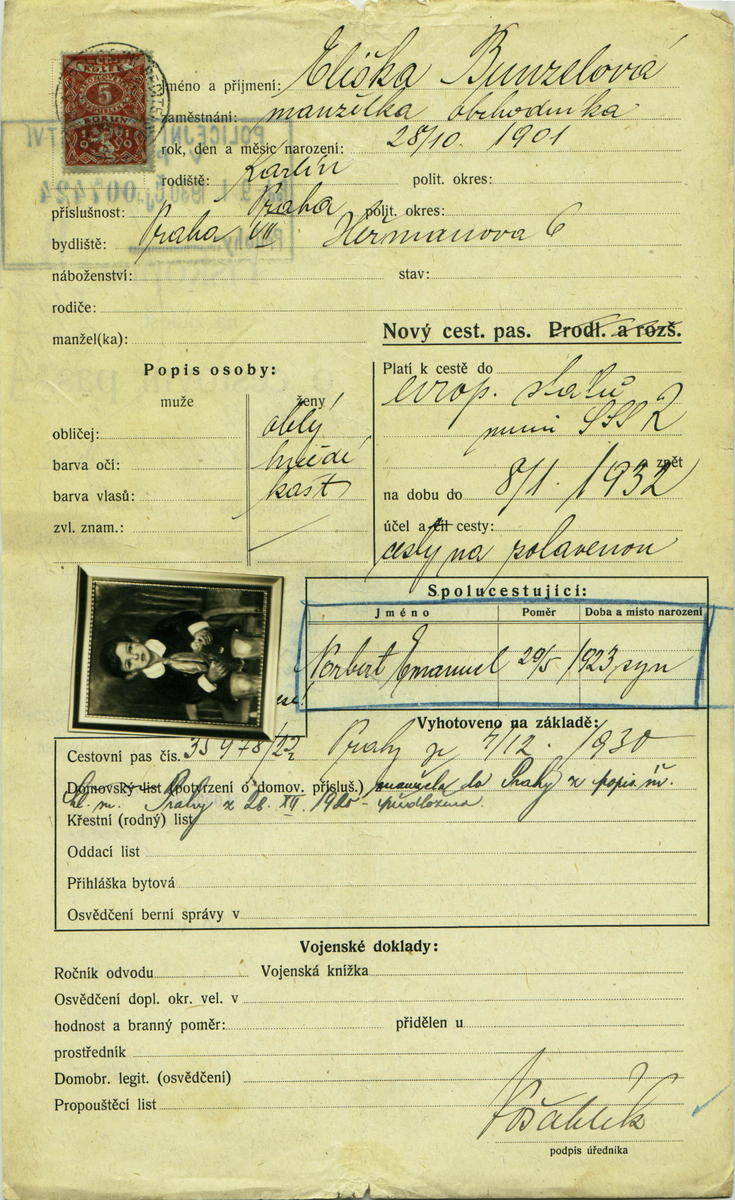 5
KORUN
jméno a příjmení: Eliška Bunzelová
zaměstnání: manželka obchodníka
rok, den a měsíc narození: 28/10. 1901
rodiště: Karlín polit. okres:
příslušnost: Praha polit. okres:
bydliště: Praha VII Heřmanova 6
POLICEJNÍ
007424
náboženství: stav:
rodiče:
manžel(ka):
Nový cest. pas. Prodl. a rozš.
Popis osoby:
muže ženy
obličej: oblý
barva očí: hnědé
barva vlasů: kašt
zvl. znam.:
Platí k cestě do
evrop. států
mimo SSSR
a zpět
na dobu do 8/1. 1932
účel a cíl cesty:
cesty na zotavenou
Spolucestující:
Jméno Poměr Doba a místo narození
Norbert Emanuel 29/5 1923 syn
Vyhotoveno na základě:
Cestovní pas čís. 35978/22 Prahy ze 4/12. 1930
Domovský list (potvrzení o domov. přísluš.) manžela do Prahy z popis. úř.
hl. m. Prahy z 28. XII. 1920 - předložena.
Křestní (rodný) list
Oddací list
Přihláška bytová
Osvědčení berní správy v
Vojenské doklady:
Ročník odvodu Vojenská knížka
Osvědčení dopl. okr. vel. v
hodnost a branný poměr: přidělen u
prostředník
Domobr. legit. (osvědčení)
Propouštěcí list
podpis úředníka